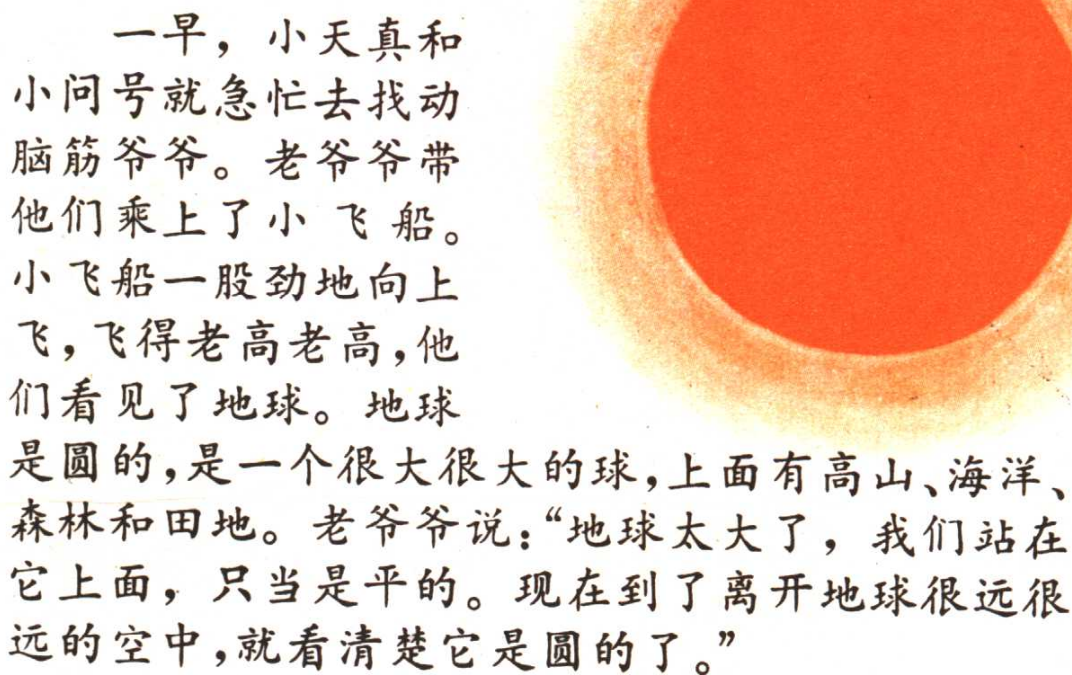 一早，小天真和
小问号就急忙去找动
脑筋爷爷。老爷爷带
他们乘上了小飞船。
小飞船一股劲地向上
飞，飞得老高老高，他
们看见了地球。地球
是圆的，是一个很大很大的球，上面有高山、海洋、
森林和田地。老爷爷说：“地球太大了，我们站在
它上面，只当是平的。现在到了离开地球很远很
远的空中，就看清楚它是圆的了。”